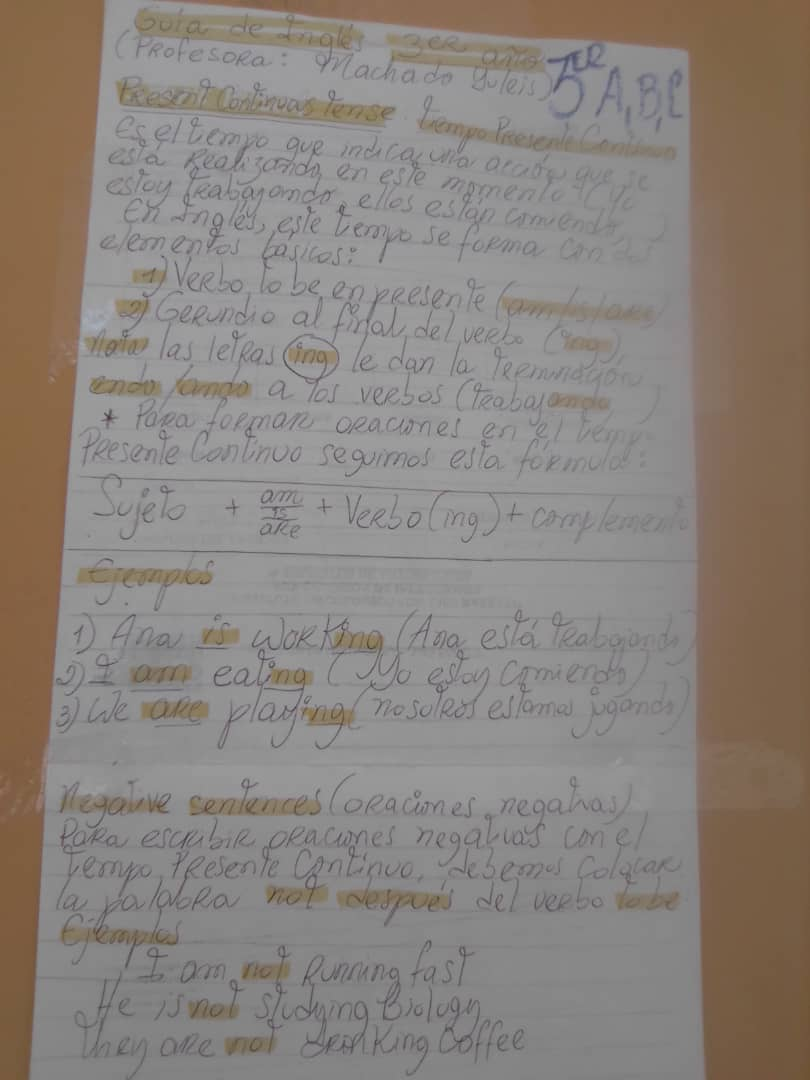 Guía de Inglés 3ER año
(Profesora: Machado Yuleis) 3ER A, B, C
Present Continuas Tense. tiempo Presente Continuo
Es el tiempo que indica una acción que se
está Realizando en este momento (yo
estoy trabajando, ellos están comiendo)
En Inglés, este tiempo se forma con dos
elementos básicos:
1) Verbo to be en presente (am/is/are)
2) Gerundio al final del verbo (ing)
Nota las letras (ing) le dan la terminación
endo/ando a los verbos (trabajando)
* Para formar oraciones en el tiemp
Presente Continuo seguimos esta fórmula:
Sujeto + am/is/are + Verbo(ing) + complemento
Ejemplos
1) Ana is working (Ana está trabajando)
2) I am eating (Yo estoy comiendo)
3) We are playing (nosotros estamos jugando)
Negative sentences (oraciones negativas)
Para escribir oraciones negativas con el
tiempo Presente Continuo, debemos colocar
la palabra not después del verbo to be
Ejemplos
I am not Running fast
He is not studying Biology
They are not drinking Coffee